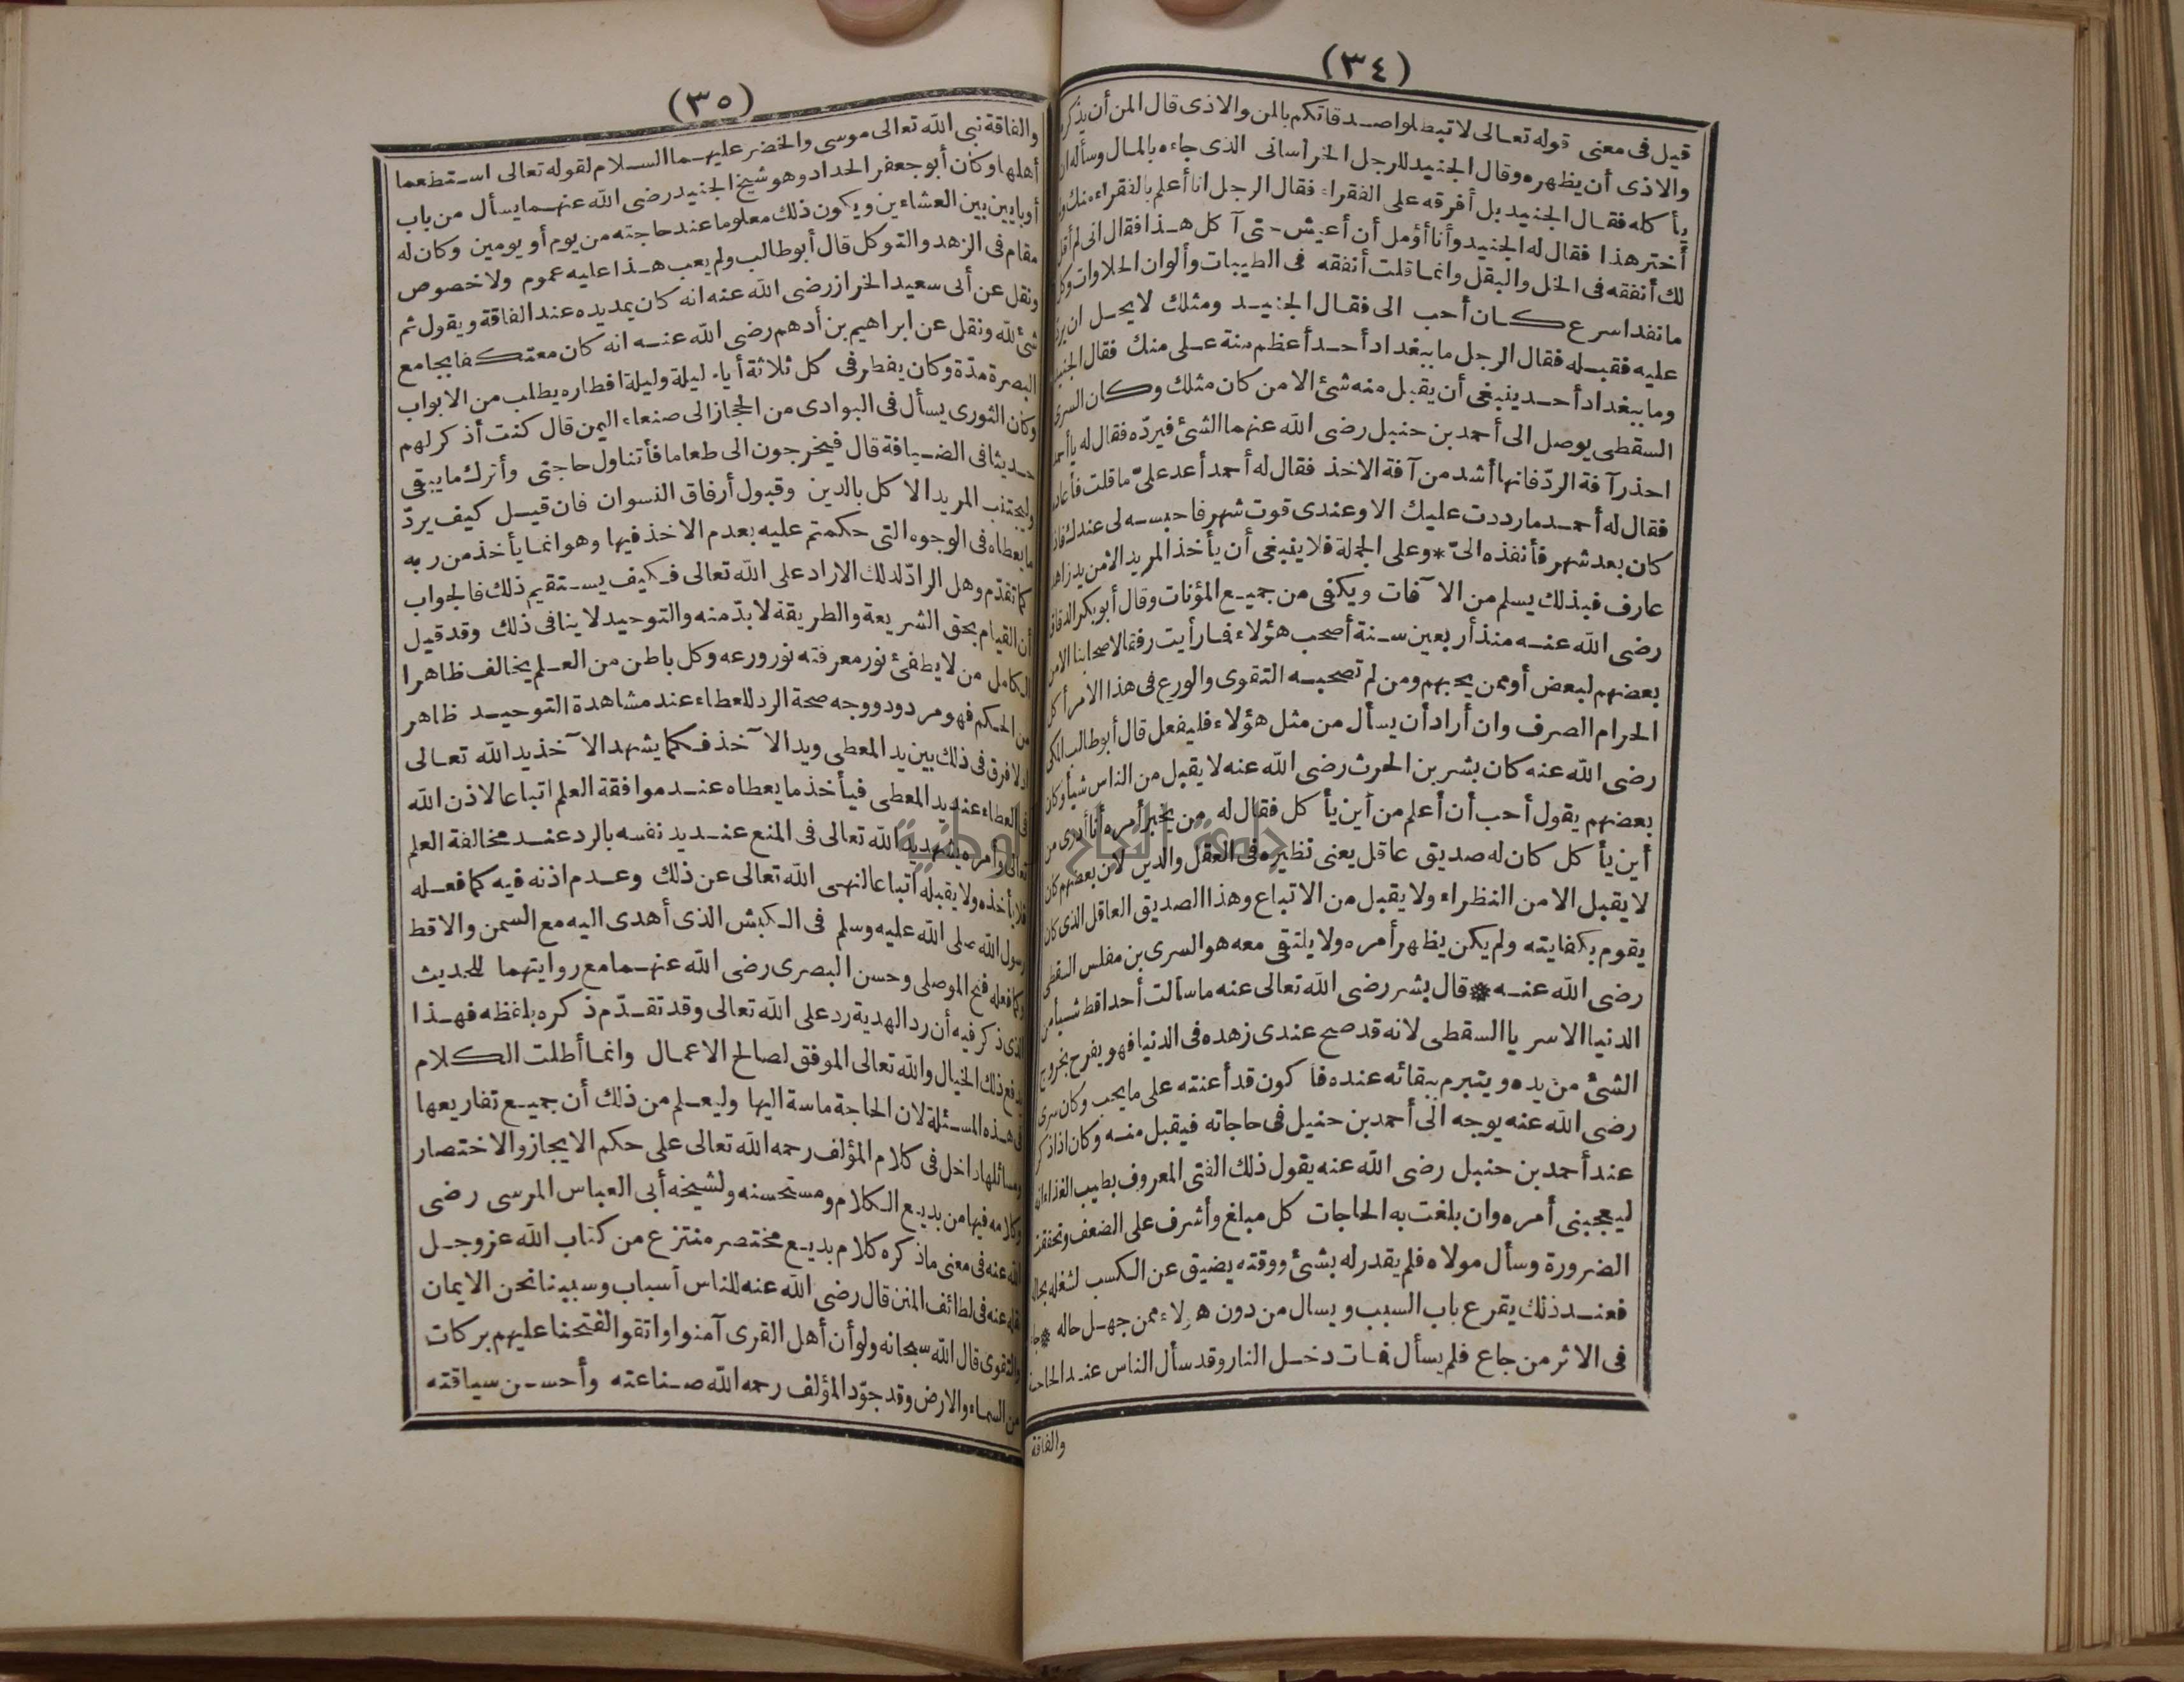 (٣٤)
قيل فى معنى قوله تعالى لا تبطلوا صدقاتكم بالمن والاذى قال المن أن يذكره
والاذى أن يظهره وقال الجنيد للرجل الخراسانى الذى جاءه بالمال وسأله ان
يأكله فقال الجنيد بل أفرقه على الفقراء فقال الرجل انا أعلم بالفقراء منك ولم
أختر هذا فقال له الجنيد وأنا أؤمل أن أعيش حتى آكل هذا فقال انى لم أقل
لك أنفقه فى الخل والبقل وانما قلت أنفقه فى الطيبات وألوان الحلاوات وكل
ما نفد اسرع كان أحب الى فقال الجنيد ومثلك لا يحل ان يرد
عليه فقبله فقال الرجل ما ببغداد أحد أعظم منة على منك فقال الجنيد
وما ببغداد أحد ينبغى أن يقبل منه شئ الا من كان مثلك وكان السرى
السقطى يوصل الى أحمد بن حنبل رضى الله عنهما الشئ فيردّه فقال له يا أحمد
احذر آفة الردّ فانها أشد من آفة الاخذ فقال له أحمد أعد علىّ ما قلت فأعاد
فقال له أحمد ما رددت عليك الا وعندى قوت شهر فاحبسه لى عندك فاذا
كان بعد شهر فأنفذه الىّ * وعلى الجملة فلا ينبغى أن يأخذ المريد الا من يد زاهد
عارف فبذلك يسلم من الآفات ويكفى من جميع المؤنات وقال أبو بكر الدقاق
رضى الله عنه منذ أربعين سنة أصحب هؤلاء فما رأيت رفقا لاصحابنا الا من
بعضهم لبعض أو ممن يحبهم ومن لم تصحبه التقوى والورع فى هذا الامر أكل
الحرام الصرف وان أراد أن يسأل من مثل هؤلاء فليفعل قال أبو طالب المكى
رضى الله عنه كان بشر بن الحرث رضى الله عنه لا يقبل من الناس شيأ وكان
بعضهم يقول أحب أن أعلم من أين يأكل فقال له من يخبر أمره أنا أدرى من
أين يأكل كان له صديق عاقل يعنى نظيره فى العقل والدين لان بعضهم كان
لا يقبل الا من النظراء ولا يقبل من الاتباع وهذا الصديق العاقل الذى كان
يقوم بكفايته ولم يكن يظهر أمره ولا يلتقى معه هو السرى بن مفلس السقطى
رضى الله عنه * قال بشر رضى الله تعالى عنه ما سألت أحدا قط شيأ من
الدنيا الا سريا السقطى لانه قد صح عندى زهده فى الدنيا فهو يفرح بخروج
الشئ من يده ويتبرم ببقائه عنده فأكون قد أعنته على ما يحب وكان سرى
رضى الله عنه يوجه الى أحمد بن حنبل فى حاجاته فيقبل منه وكان اذا ذكر
عند أحمد بن حنبل رضى الله عنه يقول ذلك الفتى المعروف بطيب الغذاء انه
ليعجبنى أمره وان بلغت به الحاجات كل مبلغ وأشرف على الضعف وتحققت
الضرورة وسأل مولاه فلم يقدر له بشئ ووقته يضيق عن الكسب لشغله بحاله
فعند ذلك يقرع باب السبب ويسال من دون هؤلاء ممن جهل حاله * جاء
فى الاثر من جاع فلم يسأل فمات دخل النار وقد سأل الناس عند الحاجة
والفاقة
(٣٥)
والفاقة نبى الله تعالى موسى والخضر عليهما السلام لقوله تعالى استطعما
أهلها وكان أبو جعفر الحداد وهو شيخ الجنيد رضى الله عنهما يسأل من باب
أو بابين بين العشاءين ويكون ذلك معلوما عند حاجته من يوم أو يومين وكان له
مقام فى الزهد والتوكل قال أبو طالب ولم يعب هذا عليه عموم ولا خصوص
ونقل عن أبى سعيد الخراز رضى الله عنه انه كان يمد يده عند الفاقة ويقول ثم
شئ لله ونقل عن ابراهيم بن أدهم رضى الله عنه انه كان معتكفا بجامع
البصرة مدّة وكان يفطر فى كل ثلاثة أيام ليلة وليلة افطاره يطلب من الابواب
وكان الثورى يسأل فى البوادى من الحجاز الى صنعاء اليمن قال كنت أذكر لهم
حديثا فى الضيافة قال فيخرجون الى طعاما فأتناول حاجتى وأترك ما يبقى
وليجتنب المريد الاكل بالدين وقبول أرفاق النسوان فان قيل كيف يردّ
ما يعطاه فى الوجوه التى حكمتم عليه بعدم الاخذ فيها وهو انما يأخذ من ربه
كما تقدّم وهل الرادّ لذلك الا راد على الله تعالى فكيف يستقيم ذلك فالجواب
أن القيام بحق الشريعة والطريقة لا بدّ منه والتوحيد لا ينافى ذلك وقد قيل
الكامل من لا يطفئ نور معرفته نور ورعه وكل باطن من العلم يخالف ظاهرا
من الحكم فهو مردود ووجه صحة الرد للعطاء عند مشاهدة التوحيد ظاهر
اذ لا فرق فى ذلك بين يد المعطى ويد الآخذ فكما يشهد الآخذ يد الله تعالى
فى العطاء عند يد المعطى فيأخذ ما يعطاه عند موافقة العلم اتباعا لاذن الله
تعالى وأمره يشهد يد الله تعالى فى المنع عند يد نفسه بالرد عند مخالفة العلم
فلا يأخذه ولا يقبله اتباعا لنهى الله تعالى عن ذلك وعدم اذنه فيه كما فعله
رسول الله صلى الله عليه وسلم فى الكبش الذى أهدى اليه مع السمن والاقط
وكما فعله فتح الموصلى وحسن البصرى رضى الله عنهما مع روايتهما للحديث
الذى ذكر فيه أن رد الهدية رد على الله تعالى وقد تقدّم ذكره بلفظه فهذا
يدفع ذلك الخيال والله تعالى الموفق لصالح الاعمال وانما أطلت الكلام
فى هذه المسئلة لان الحاجة ماسة اليها وليعلم من ذلك أن جميع تفاريعها
ومسائلها داخل فى كلام المؤلف رحمه الله تعالى على حكم الايجاز والاختصار
وكلامه فيها من بديع الكلام ومستحسنه ولشيخه أبى العباس المرسى رضى
الله عنه فى معنى ما ذكره كلام بديع مختصر منتزع من كتاب الله عز وجل
نقله عنه فى لطائف المنن قال رضى الله عنه للناس أسباب وسببنا نحن الايمان
والتقوى قال الله سبحانه ولو أن أهل القرى آمنوا واتقوا لفتحنا عليهم بركات
من السماء والارض وقد جوّد المؤلف رحمه الله صناعته وأحسن سياقته